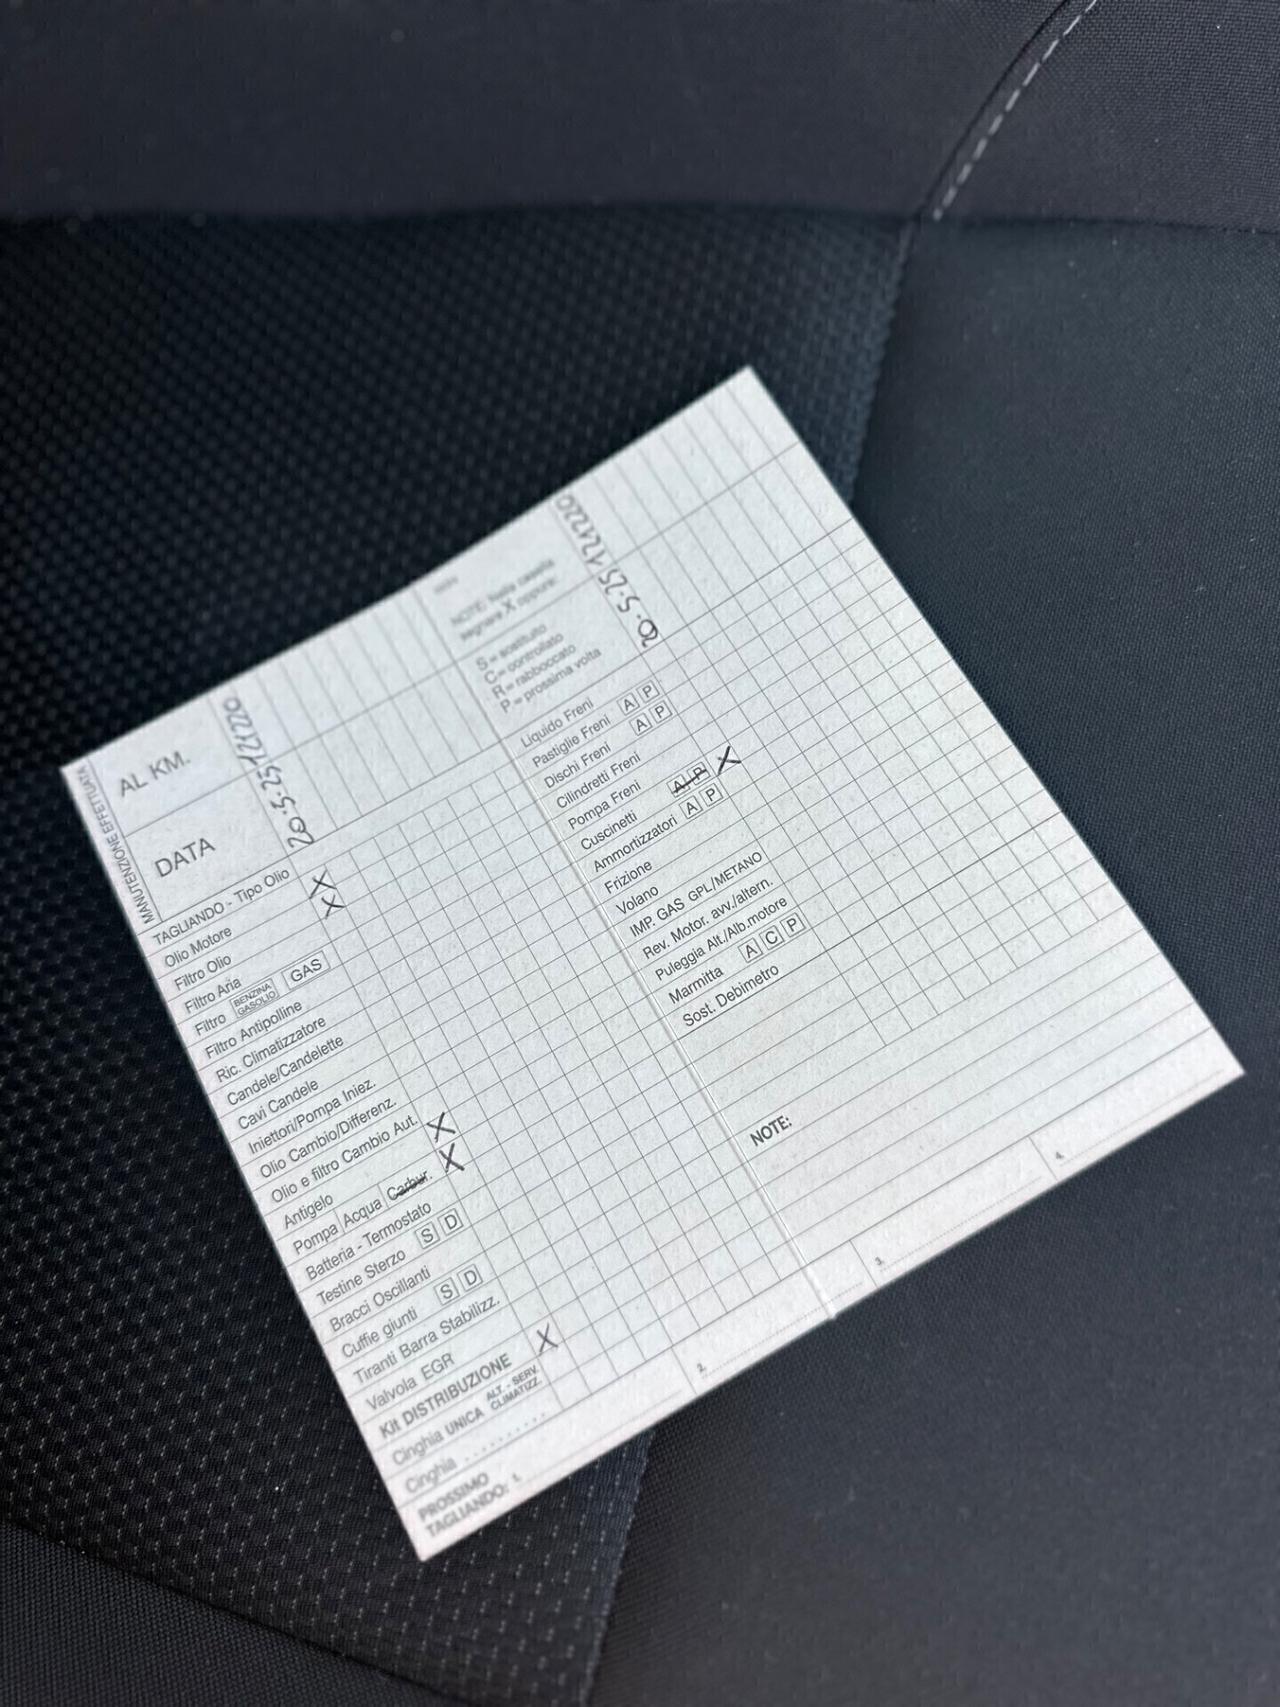 MANUTENZIONE EFFETTUATA
AL KM.
121220
DATA
20.5.25
TAGLIANDO - Tipo Olio
Olio Motore X
Filtro Olio X
Filtro Aria
Filtro BENZINA GASOLIO GAS
Filtro Antipolline
Ric. Climatizzatore
Candele/Candelette
Cavi Candele
Iniettori/Pompa Iniez.
Olio Cambio/Differenz.
Olio e filtro Cambio Aut.
Antigelo X
Pompa Acqua Carbur. X
Batteria - Termostato
Testine Sterzo S D
Bracci Oscillanti
Cuffie giunti S D
Tiranti Barra Stabilizz.
Valvola EGR
Kit DISTRIBUZIONE X
Cinghia UNICA ALT. - SERV. CLIMATIZZ.
Cinghia ..........
PROSSIMO
TAGLIANDO: 1.
2.
NOTE: Nelle caselle
segnare X oppure:
S = sostituito
C = controllato
R = rabboccato
P = prossima volta
121220
20.5.25
Liquido Freni
Pastiglie Freni A P
Dischi Freni A P
Cilindretti Freni
Pompa Freni
Cuscinetti A P X
Ammortizzatori A P
Frizione
Volano
IMP. GAS GPL/METANO
Rev. Motor. avv./altern.
Puleggia Alt./Alb.motore
Marmitta A C P
Sost. Debimetro
NOTE:
3.
4.